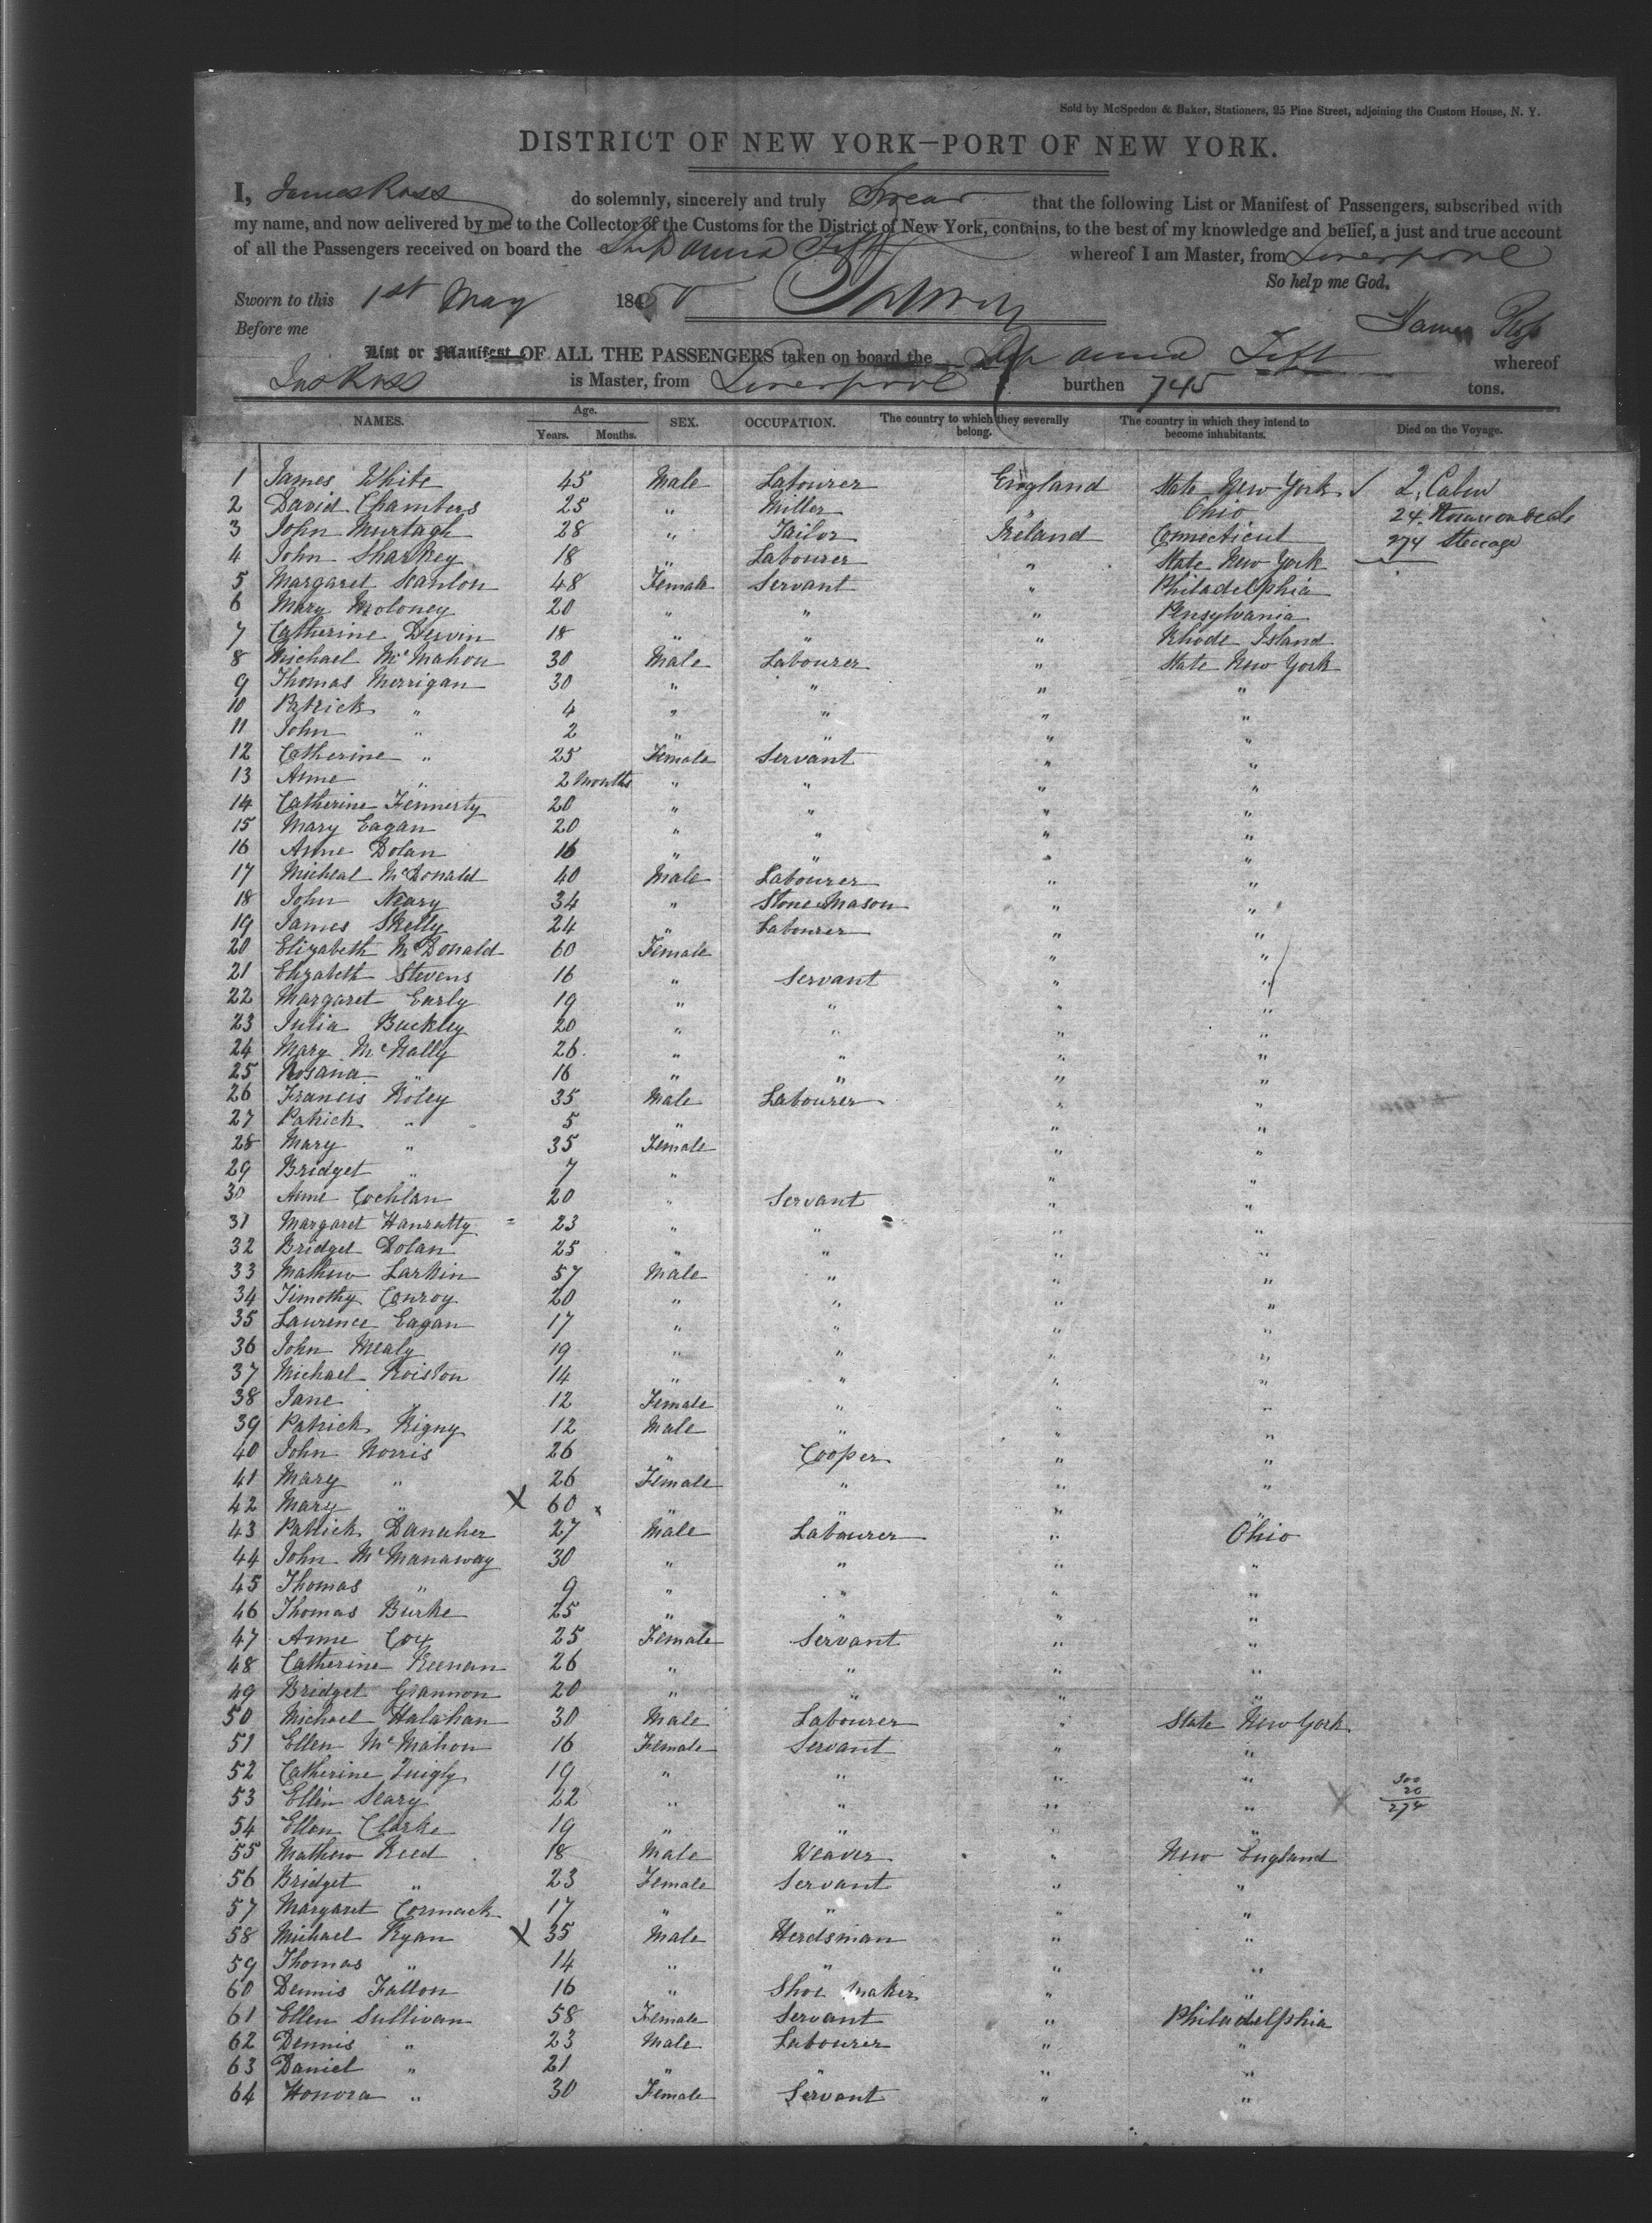 Sold by McSpedon & Baker, Stationers, 25 Pine Street, adjoining the Custom House, N. Y.
DISTRICT OF NEW YORK—PORT OF NEW YORK.
I, James Ross do solemnly, sincerely and truly Swear that the following List or Manifest of Passengers, subscribed with
my name, and now delivered by me to the Collector of the Customs for the District of New York, contains, to the best of my knowledge and belief, a just and true account
of all the Passengers received on board the Ship Anna Tift whereof I am Master, from Liverpool
So help me God.
Sworn to this 1st May 1850
James Ross
Before me
List or Manifest OF ALL THE PASSENGERS taken on board the Ship Anna Tift whereof
Jas Ross is Master, from Liverpool burthen 745 tons.
NAMES. Age. Years. Months. SEX. OCCUPATION. The country to which they severally belong. The country in which they intend to become inhabitants. Died on the Voyage.
1 James White 45 Male Labourer England State New York 2 Cabin
2 David Chambers 25 " Miller " Ohio 24
3 John Murtagh 28 " Tailor Ireland Connecticut 274 Steerage
4 John Sharkey 18 " Labourer " State New York
5 Margaret Scanlon 48 Female Servant " Philadelphia
6 Mary Moloney 20 " " " Pensylvania
7 Catherine Dervin 18 " " " Rhode Island
8 Michael McMahon 30 Male Labourer " State New York
9 Thomas Merrigan 30 " " " "
10 Patrick " 4 " " " "
11 John " 2 " " " "
12 Catherine " 25 Female Servant " "
13 Anne " 2 Months " " " "
14 Catherine Fennerty 20 " " " "
15 Mary Eagan 20 " " " "
16 Anne Dolan 16 " " " "
17 Micheal McDonald 40 Male Labourer " "
18 John Neary 34 " Stone Mason " "
19 James Skelly 24 " Labourer " "
20 Elizabeth McDonald 60 Female " "
21 Elizabeth Stevens 16 " Servant " "
22 Margaret Early 19 " " " "
23 Julia Buckley 20 " " " "
24 Mary McNally 26 " " " "
25 Rosana " 16 " " " "
26 Francis Foley 35 Male Labourer " "
27 Patrick " 5 " " "
28 Mary " 35 Female " "
29 Bridget " 7 " " "
30 Anne Cochlan 20 " Servant " "
31 Margaret Hanratty 23 " " " "
32 Bridget Dolan 25 " " " "
33 Mathew Larkin 57 Male " " "
34 Timothy Conroy 20 " " " "
35 Laurence Eagan 17 " " " "
36 John Mealy 19 " " " "
37 Michael Roiston 14 " " " "
38 Jane 12 Female " " "
39 Patrick Rigny 12 Male " " "
40 John Norris 26 " Cooper " "
41 Mary " 26 Female " " "
42 Mary " X 60 " " " "
43 Patrick Danaher 27 Male Labourer " Ohio
44 John McManaway 30 " " " "
45 Thomas " 9 " " " "
46 Thomas Burke 25 " " " "
47 Anne Cox 25 Female Servant " "
48 Catherine Keenan 26 " " " "
49 Bridget Grannon 20 " " " "
50 Michael Halahan 30 Male Labourer " State New York
51 Ellen McMahon 16 Female Servant " "
52 Catherine Quigly 19 " " " "
53 Ellen Seary 22 " " " " X 300 26 274
54 Ellen Clarke 19 " " " "
55 Mathew Reed 18 Male Weaver " New England
56 Bridget " 23 Female Servant " "
57 Margaret Cormack 17 " " " "
58 Michael Ryan X 35 Male Herdsman " "
59 Thomas " 14 " " " "
60 Dennis Fallon 16 " Shoe Maker " "
61 Ellen Sullivan 58 Female Servant " Philadelphia
62 Dennis " 23 Male Labourer " "
63 Daniel " 21 " " " "
64 Honora " 30 Female Servant " "